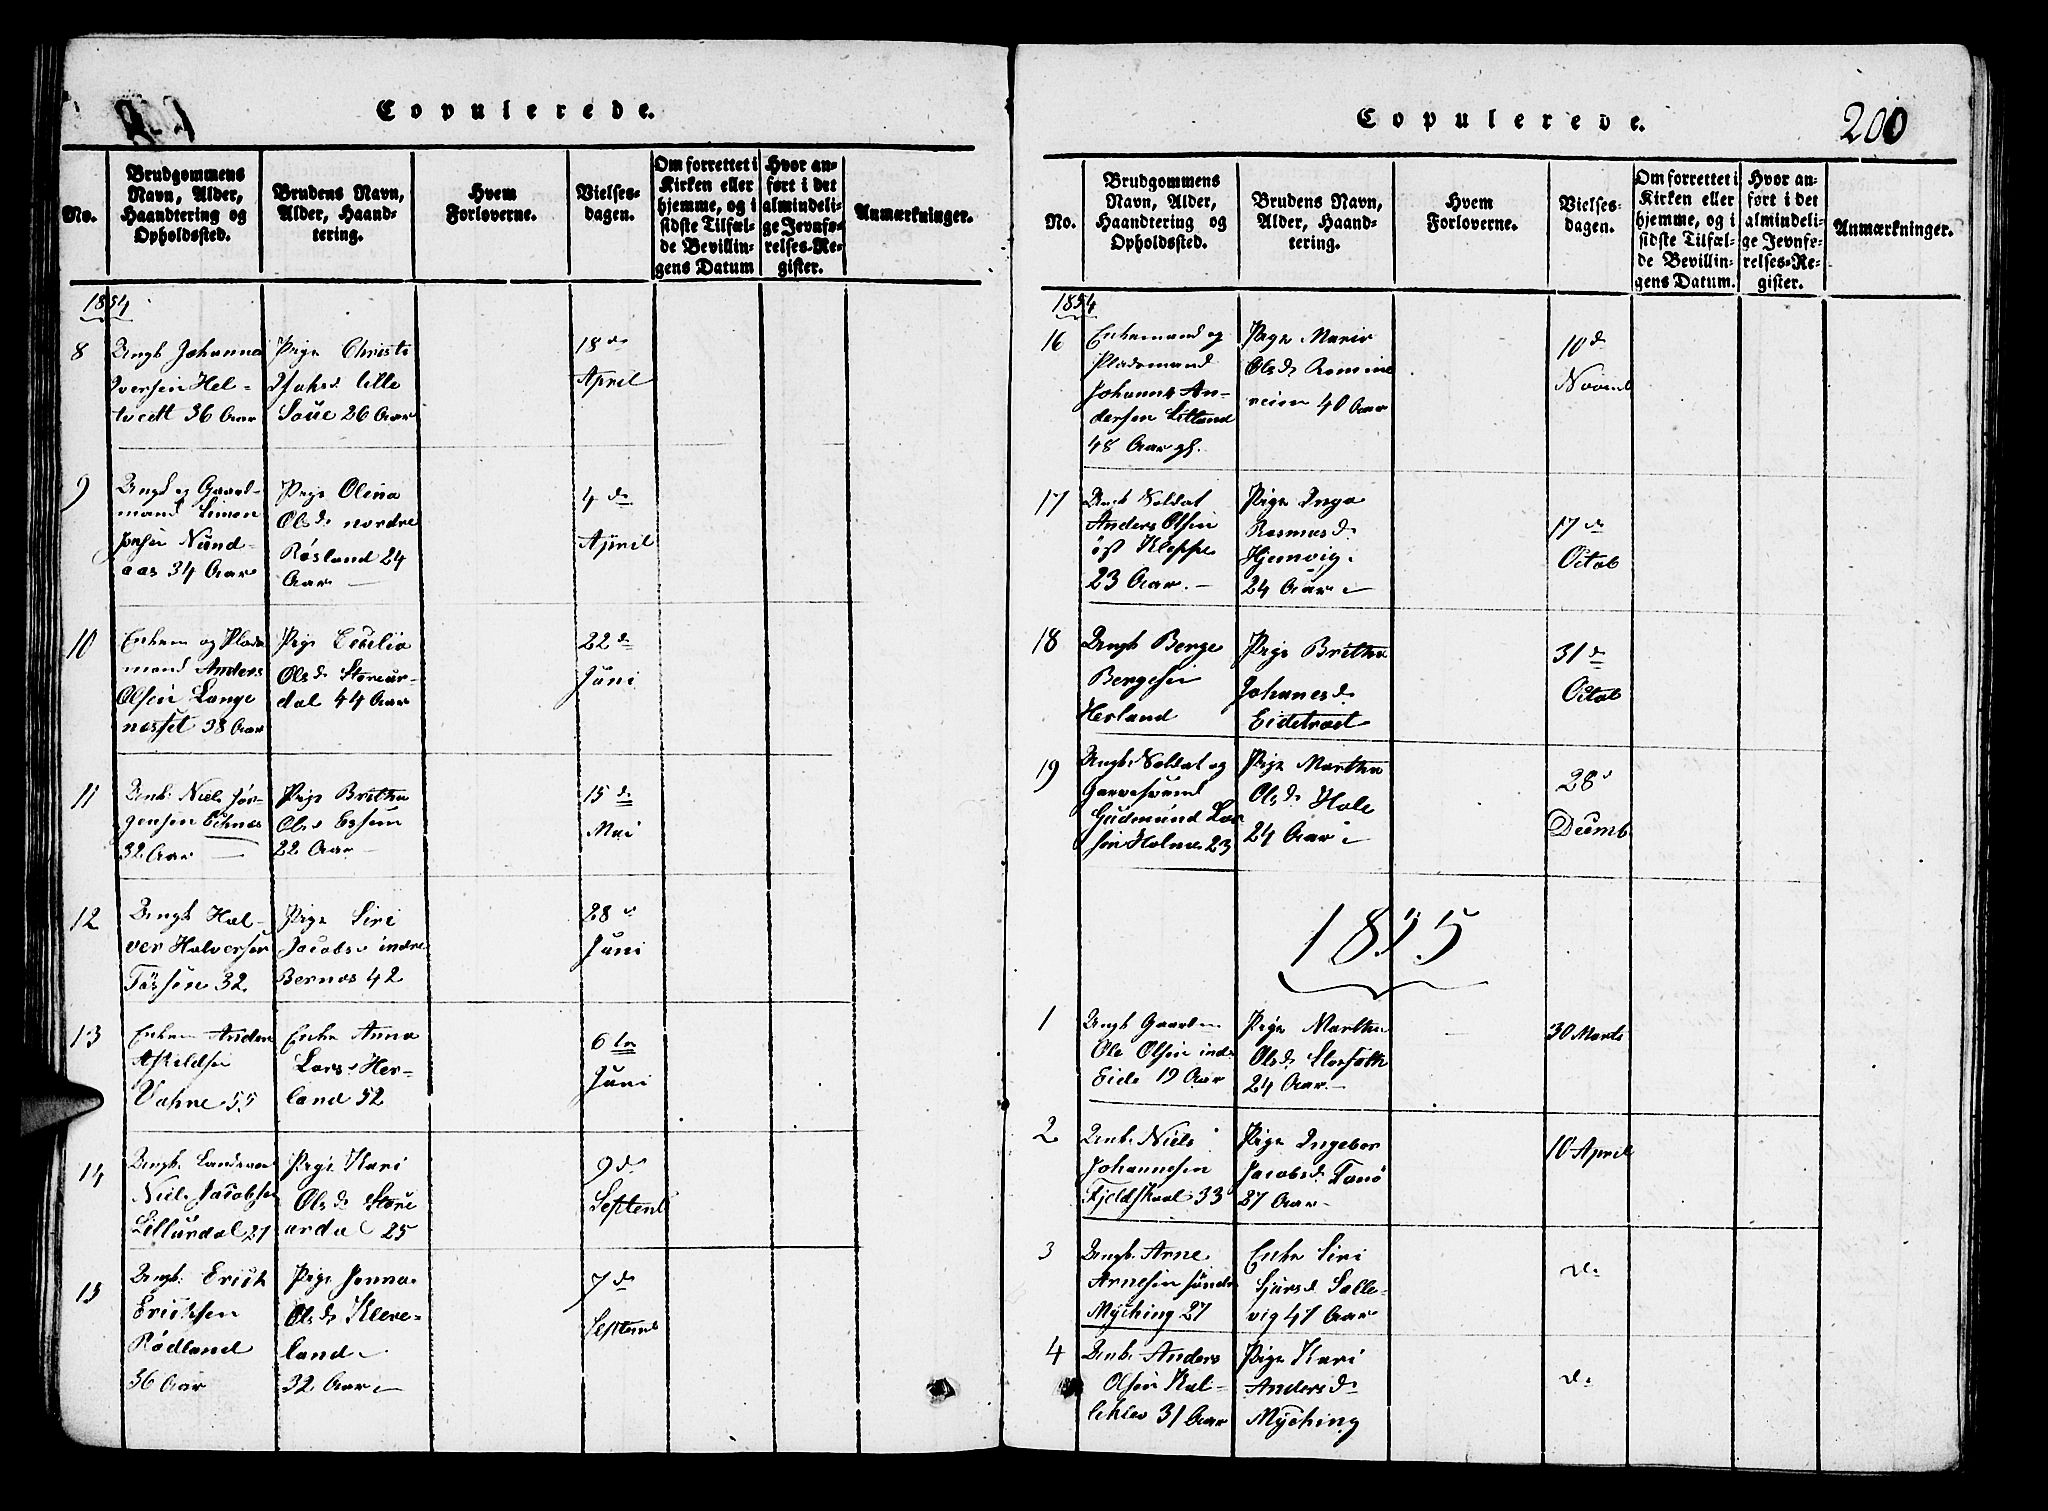 Copulerede.
No.
Brudgommens
Navn, Alder,
Haandtering og
Opholdssted.
Brudens Navn,
Alder, Haand-
tering.
Hvem
Forloverne.
Vielses-
dagen.
Om forrettet i
Kirken eller
hjemme, og i
sidste Tilfæl-
de Bevillin-
gens Datum
Hvor an-
ført i det
almindeli-
ge Jevnfø-
relses-Re-
gister.
Anmærkninger.
1854
8
Ungk Johanna
Iversen Hel-
tvedt 36 Aar
Pige Christi
lille
Soue 26 Aar
18 de
April
9
Ungk og Gaard-
mand Simon
Nund-
aas 34 Aar
Pige Olina
Olsd nordre
Røsland 24
Aar
4 de
April
10
Enkem og Plads
mand Anders
Olsen Lange
nesset 38 Aar
Pige Cecilia
Olsd Storeur-
dal 44 Aar
22 de
Juni
11
Unk. Niels Jør-
gensen
32 Aar
Pige Britha
Olsd
22 Aar
15 de
Mai
12
Ungk Hal-
vor Halversen
32
Pige Siri
Jacobsd indre
Bernes 42
28 d
Juni
13
Enkem Anders
Askildsen
Vahre 55
Enke Anna
Larsd Her-
land 52
6 te
Juni
14
Ungk.
Niels Jacobsen
Lillurdal 27
Pige Kari
Olsd Store
urdal 25
9 de
Septemb
15
Ungk. Erick
Ericksen
Rødland
36 Aar
Pige Jonna
Olsd Kleve-
land
32 Aar
7 de
Septemb
Copulerede.
200
No.
Brudgommens
Navn, Alder,
Haandtering og
Opholdssted.
Brudens Navn,
Alder, Haand-
tering.
Hvem
Forloverne.
Vielses-
dagen.
Om forrettet i
Kirken eller
hjemme, og i
sidste Tilfæl-
de Bevillin-
gens Datum.
Hvor an-
ført i det
almindeli-
ge Jevnfø-
relses-Re-
gister.
Anmærkninger.
1854
16
Enkemand og
Pladsmand
Johannes An-
dersen Litland
48 Aar gl.
Pige Marie
Olsd
reim 40 Aar
10 de
Novemb
17
Unk Soldat
Anders Olsen
øst Kleppe
23 Aar.
Pige Inga
Rasmusd
Hjemvig
24 Aar
17 de
Octob
18
Ungk Berge
Bergesen
Herland
Pige Britha
Johanesd
Eidetræt
31 de
Octob
19
Ungk. Soldat og
Gudmund Lar
sen Holme 23
Pige Martha
Olsd Hole
24 Aar
28 d
Decemb
1855
1
Ungk Gaardm
Ole Olsen indr
Eide 19 Aar
Pige Martha
Olsd
24 Aar
30 Marts
2
Unk. Niels
Johannesen
Fjeldskaal 33
Pige Ingebor
Jacobsd
27 Aar
10 April
3
Ungk. Arne
Arnesen søndr
Mÿching 27
Enke Siri
Sjursd Salle-
vig 47 Aar
d.
4
Unk. Anders
Olsen Kal-
31 Aar
Pige Kari
Andersd
Mÿching
d.